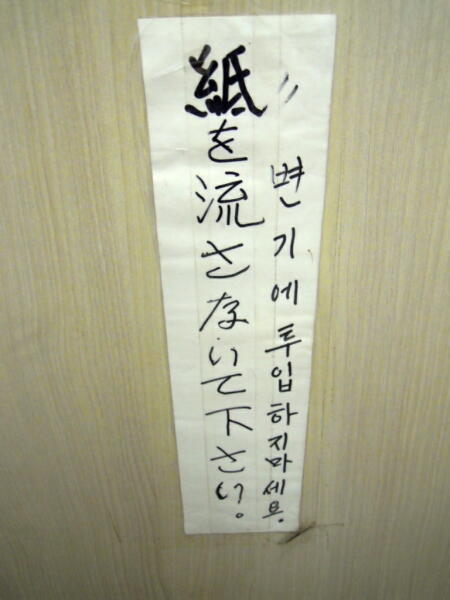 紙を流さないで下さい。
〃 변기에 투입하지마세용.